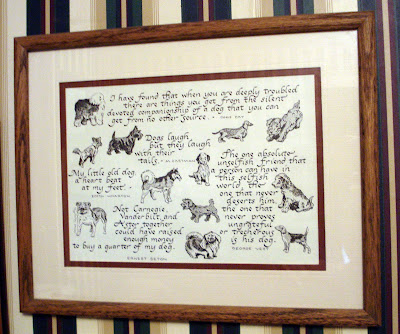 I have found that when you are deeply troubled
there are things you get from the silent
devoted companionship of a dog that you can
get from no other source. - DORIS DAY
Dogs laugh,
but they laugh
with their
tails. - MAX EASTMAN
My little old dog,
a heart beat
at my feet. -
EDITH WHARTON
The one absolute,
unselfish friend that
a person can have in
this selfish
world, the
one that never
deserts him,
the one that
never proves
ungrateful
or trecherous
is his dog.
GEORGE VEST
Not Carnegie,
Vanderbilt, and
Astor together
could have raised
enough money
to buy a quarter of my dog.
ERNEST SETON